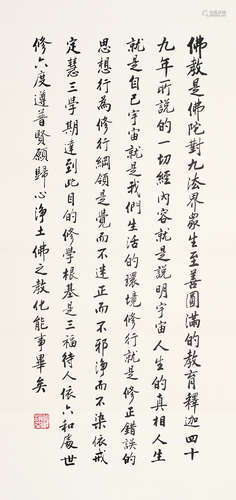 佛教是佛陀對九法界眾生至善圓滿的教育釋迦四十
九年所說的一切經內容就是說明宇宙人生的真相人生
就是自己宇宙就是我們生活的環境修行就是修正錯誤的
思想行為修行綱領是覺而不迷正而不邪淨而不染依戒
定慧三學期達到此目的修學根基是三福待人依六和處世
修六度遵普賢願歸心淨土佛之教化能事畢矣